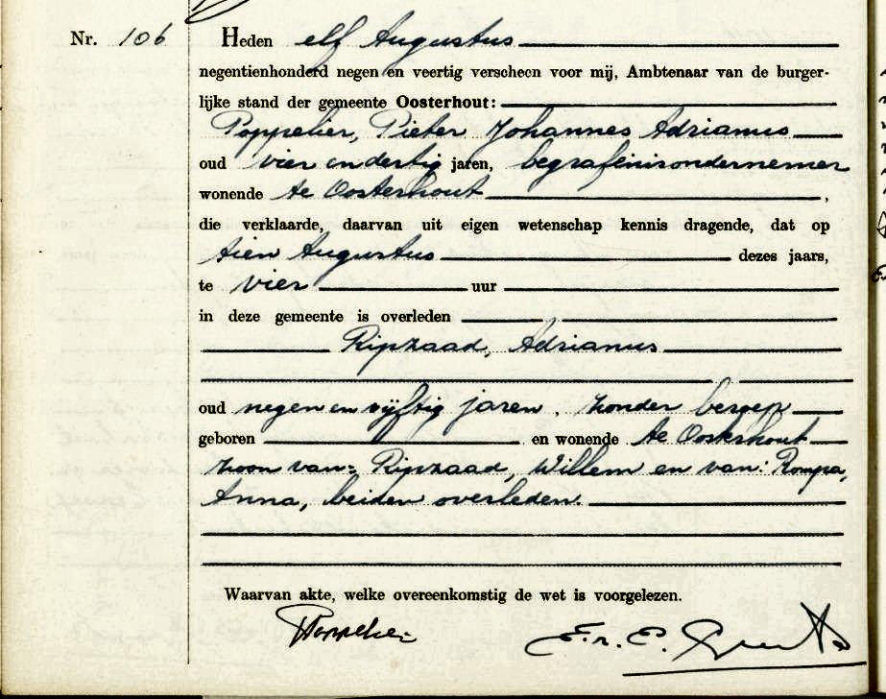 Nr. 106 Heden elf Augustus
negentienhonderd negen en veertig verscheen voor mij, Ambtenaar van de burger-
lijke stand der gemeente Oosterhout:
Poppelier, Pieter Johannes Adrianus
oud vier en dertig jaren, begrafenisondernemer
wonende te Oosterhout,
die verklaarde, daarvan uit eigen wetenschap kennis dragende, dat op
tien Augustus dezes jaars,
te vier uur
in deze gemeente is overleden
Ripzaad, Adrianus
oud negen en vijftig jaren, zonder beroep
geboren en wonende te Oosterhout
zoon van: Ripzaad, Willem en van: Rompa,
Anna, beiden overleden.
Waarvan akte, welke overeenkomstig de wet is voorgelezen.
Poppelier